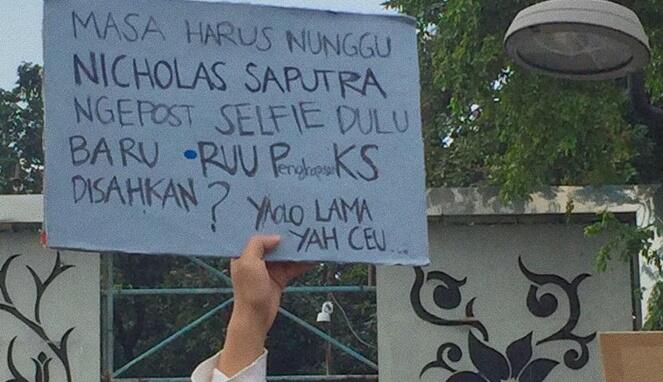 MASA HARUS NUNGGU
NICHOLAS SAPUTRA
NGEPOST SELFIE DULU
BARU •RUU PenghapusanKS
DISAHKAN? YAOLO LAMA
YAH CEU...